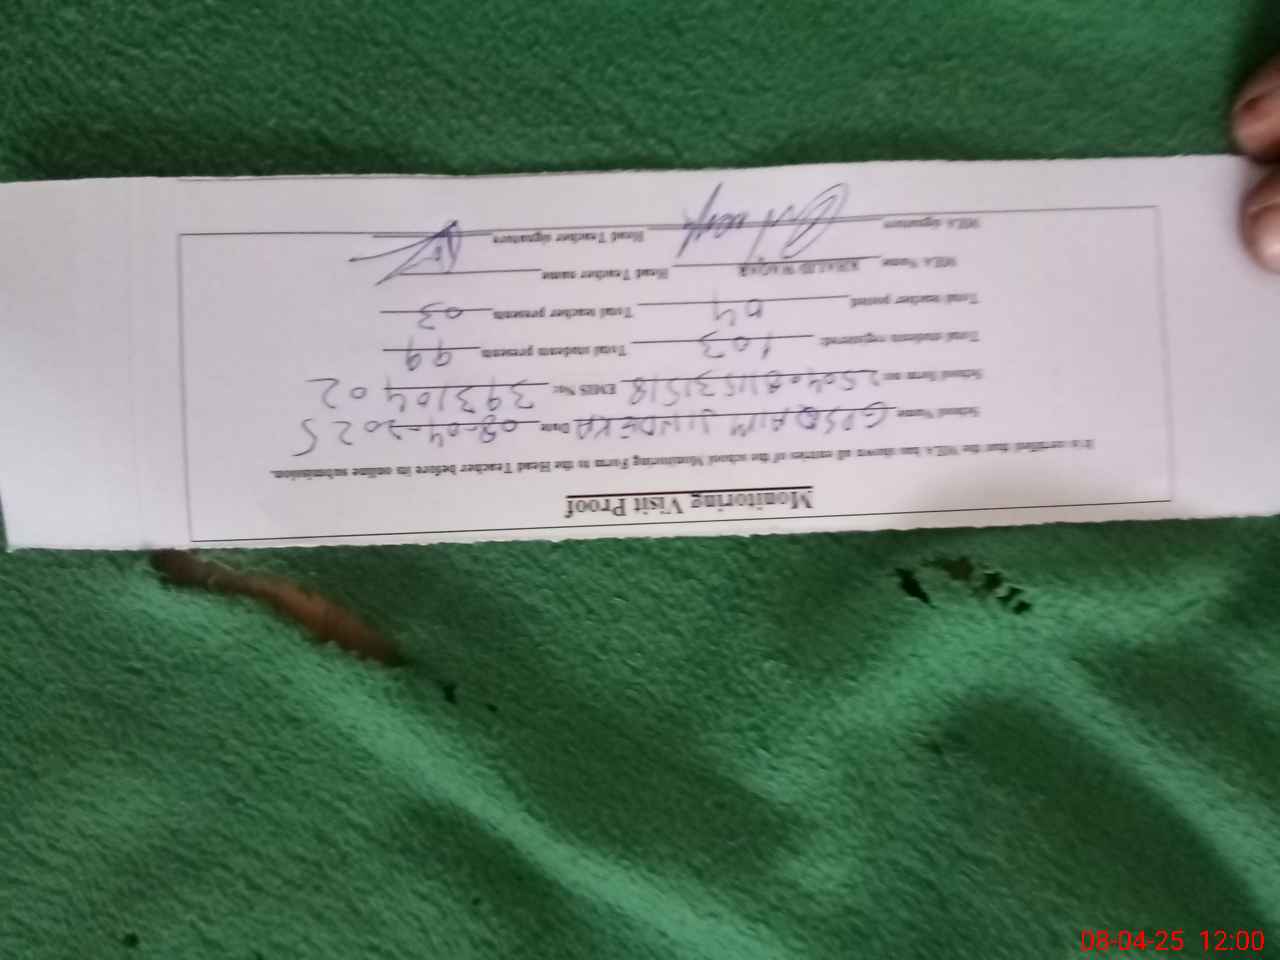 Monitoring Visit Proof
It is certified that the MEA has shown all entries of the school Monitoring Form to the Head Teacher before its online submission.
School Name GPS QAIM JINDEKA Date 08-04-2025
School Form no: 25040811531518 EMIS No: 39310402
Total students registered: 103 Total students presents 99
Total teacher posted 04 Total teacher presents 03
MEA Name KHALID WAQAR Head Teacher name
MEA signature Head Teacher signature
08-04-25 12:00